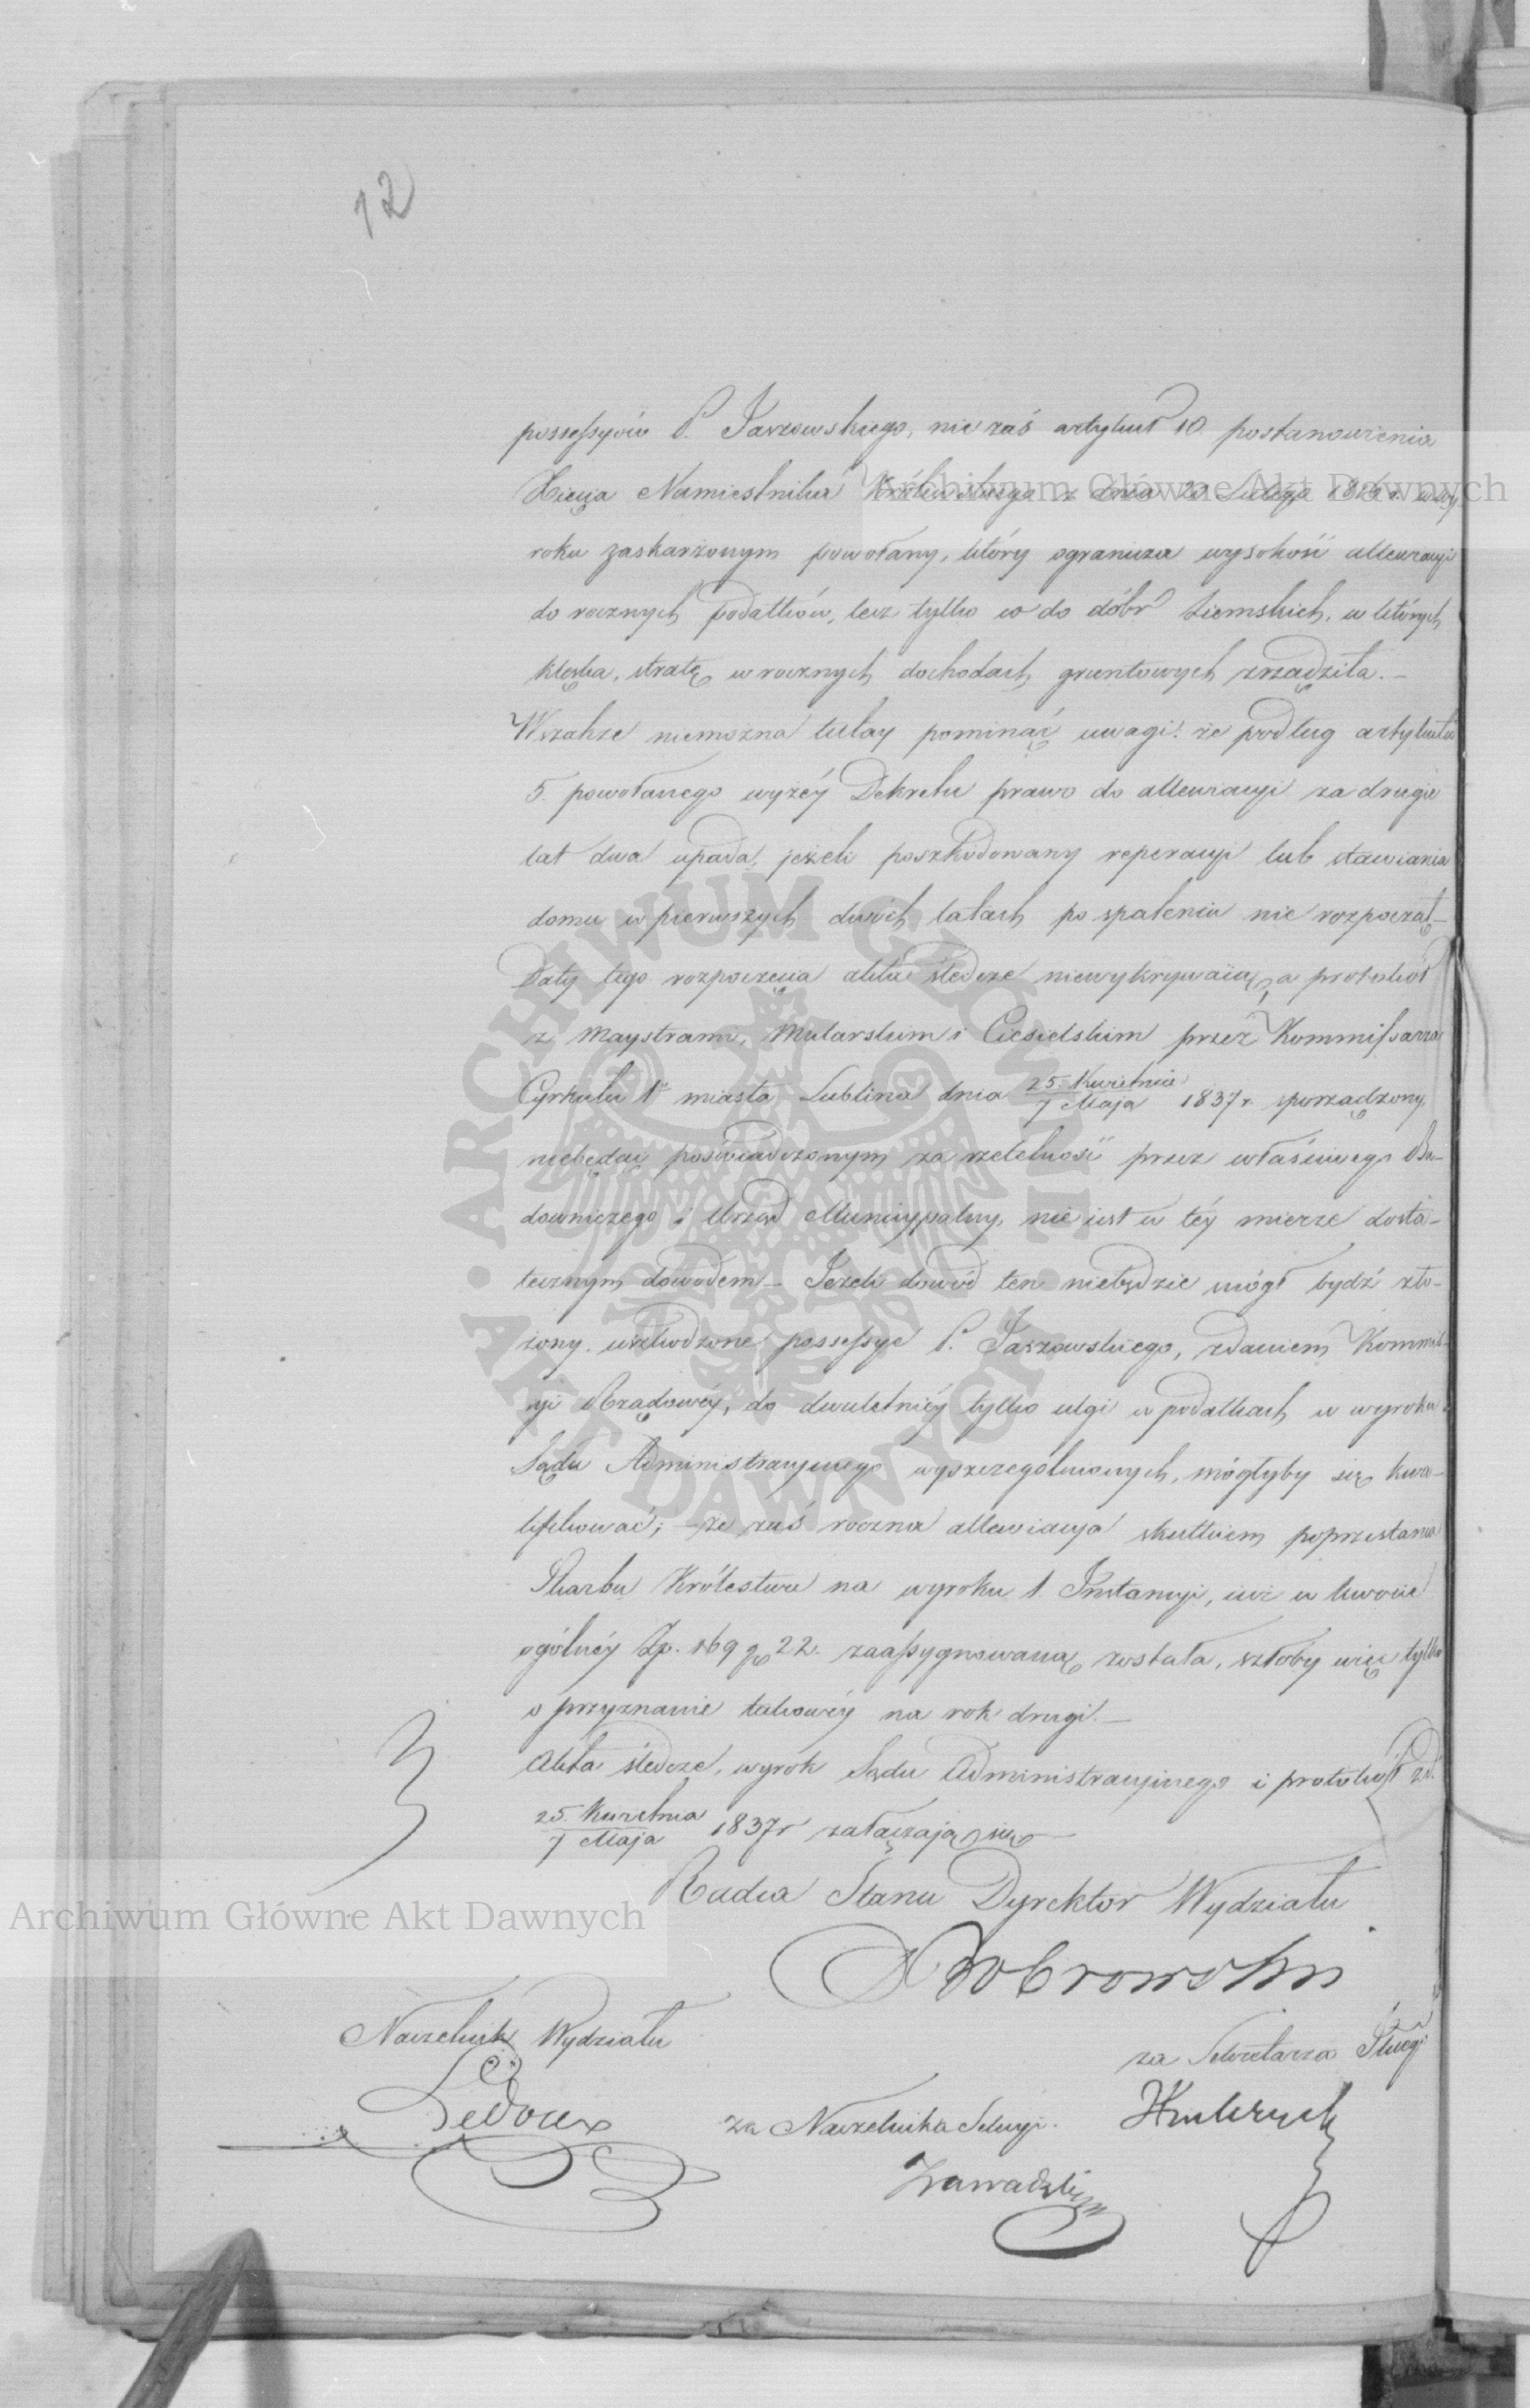 12
possessyów P. Jaszowskiego, nie zaś artykuł 10 postanowienia
Xięcia Namiestnika Królewskiego z dnia 20 Lutego w wy-
roku zaskarżonym powołany, który ogranicza wysokość allewiacyi
do rocznych podatków, lecz tylko co do dóbr ziemskich, w których
klęska, stratę w rocznych dochodach gruntowych zrządziła. —
Wszakże niemożna tutay pominąć uwagi: że podług artykułu
5. powołanego wyżéy Dekretu prawo do allewiacyi za drugie
lat dwa upada, jeżeli poszkodowany reperacyi lub stawiania
domu w pierwszych dwóch latach po spaleniu nie rozpoczął —
Daty tego rozpoczęcia akta śledcze niewykrywaią, a protokół
z Maystrami, Mularskim i Ciesielskim przez Kommissarza
Cyrkułu 1º miasta Lublina dnia 25. Kwietnia / 7 Maja 1837 r. sporządzony,
niebędąc poświadczonym za rzetelność przez właściwego Bu-
downiczego i Urząd Municypalny, nie iest w téy mierze dosta-
tecznym dowodem — Jeżeli dowód ten niebędzie mógł bydź zło-
żony, uszkodzone possessye P. Jaszowskiego, zdaniem Kommis-
syi Rządowéy, do dwuletniéy tylko ulgi w podatkach w wyroku
Sądu Administracyjnego wyszczególnionych, mógłyby się kwa-
lifikować; — że zaś roczna allewiacya skutkiem poprzestania
Skarbu Królestwa na wyroku 1. Instancyi, iuż w kwocie
ogólnéy Zp. 169 g 22. zaassygnowaną została, szłoby więc tylko
o przyznanie takowéy na rok drugi. —
Akta śledcze, wyrok Sądu Administracyjnego i protokół z d.
25. Kwietnia / 7 Maja 1837 r załączają się —
Radca Stanu Dyrektor Wydziału
Naczelnik Wydziału
za Sekretarza
Ledoux
za Naczelnika Sekcyi.
Zawadzki
Archiwum Główne Akt Dawnych
Archiwum Główne Akt Dawnych
ARCHIWUM GŁÓWNE · AKT DAWNYCH ·